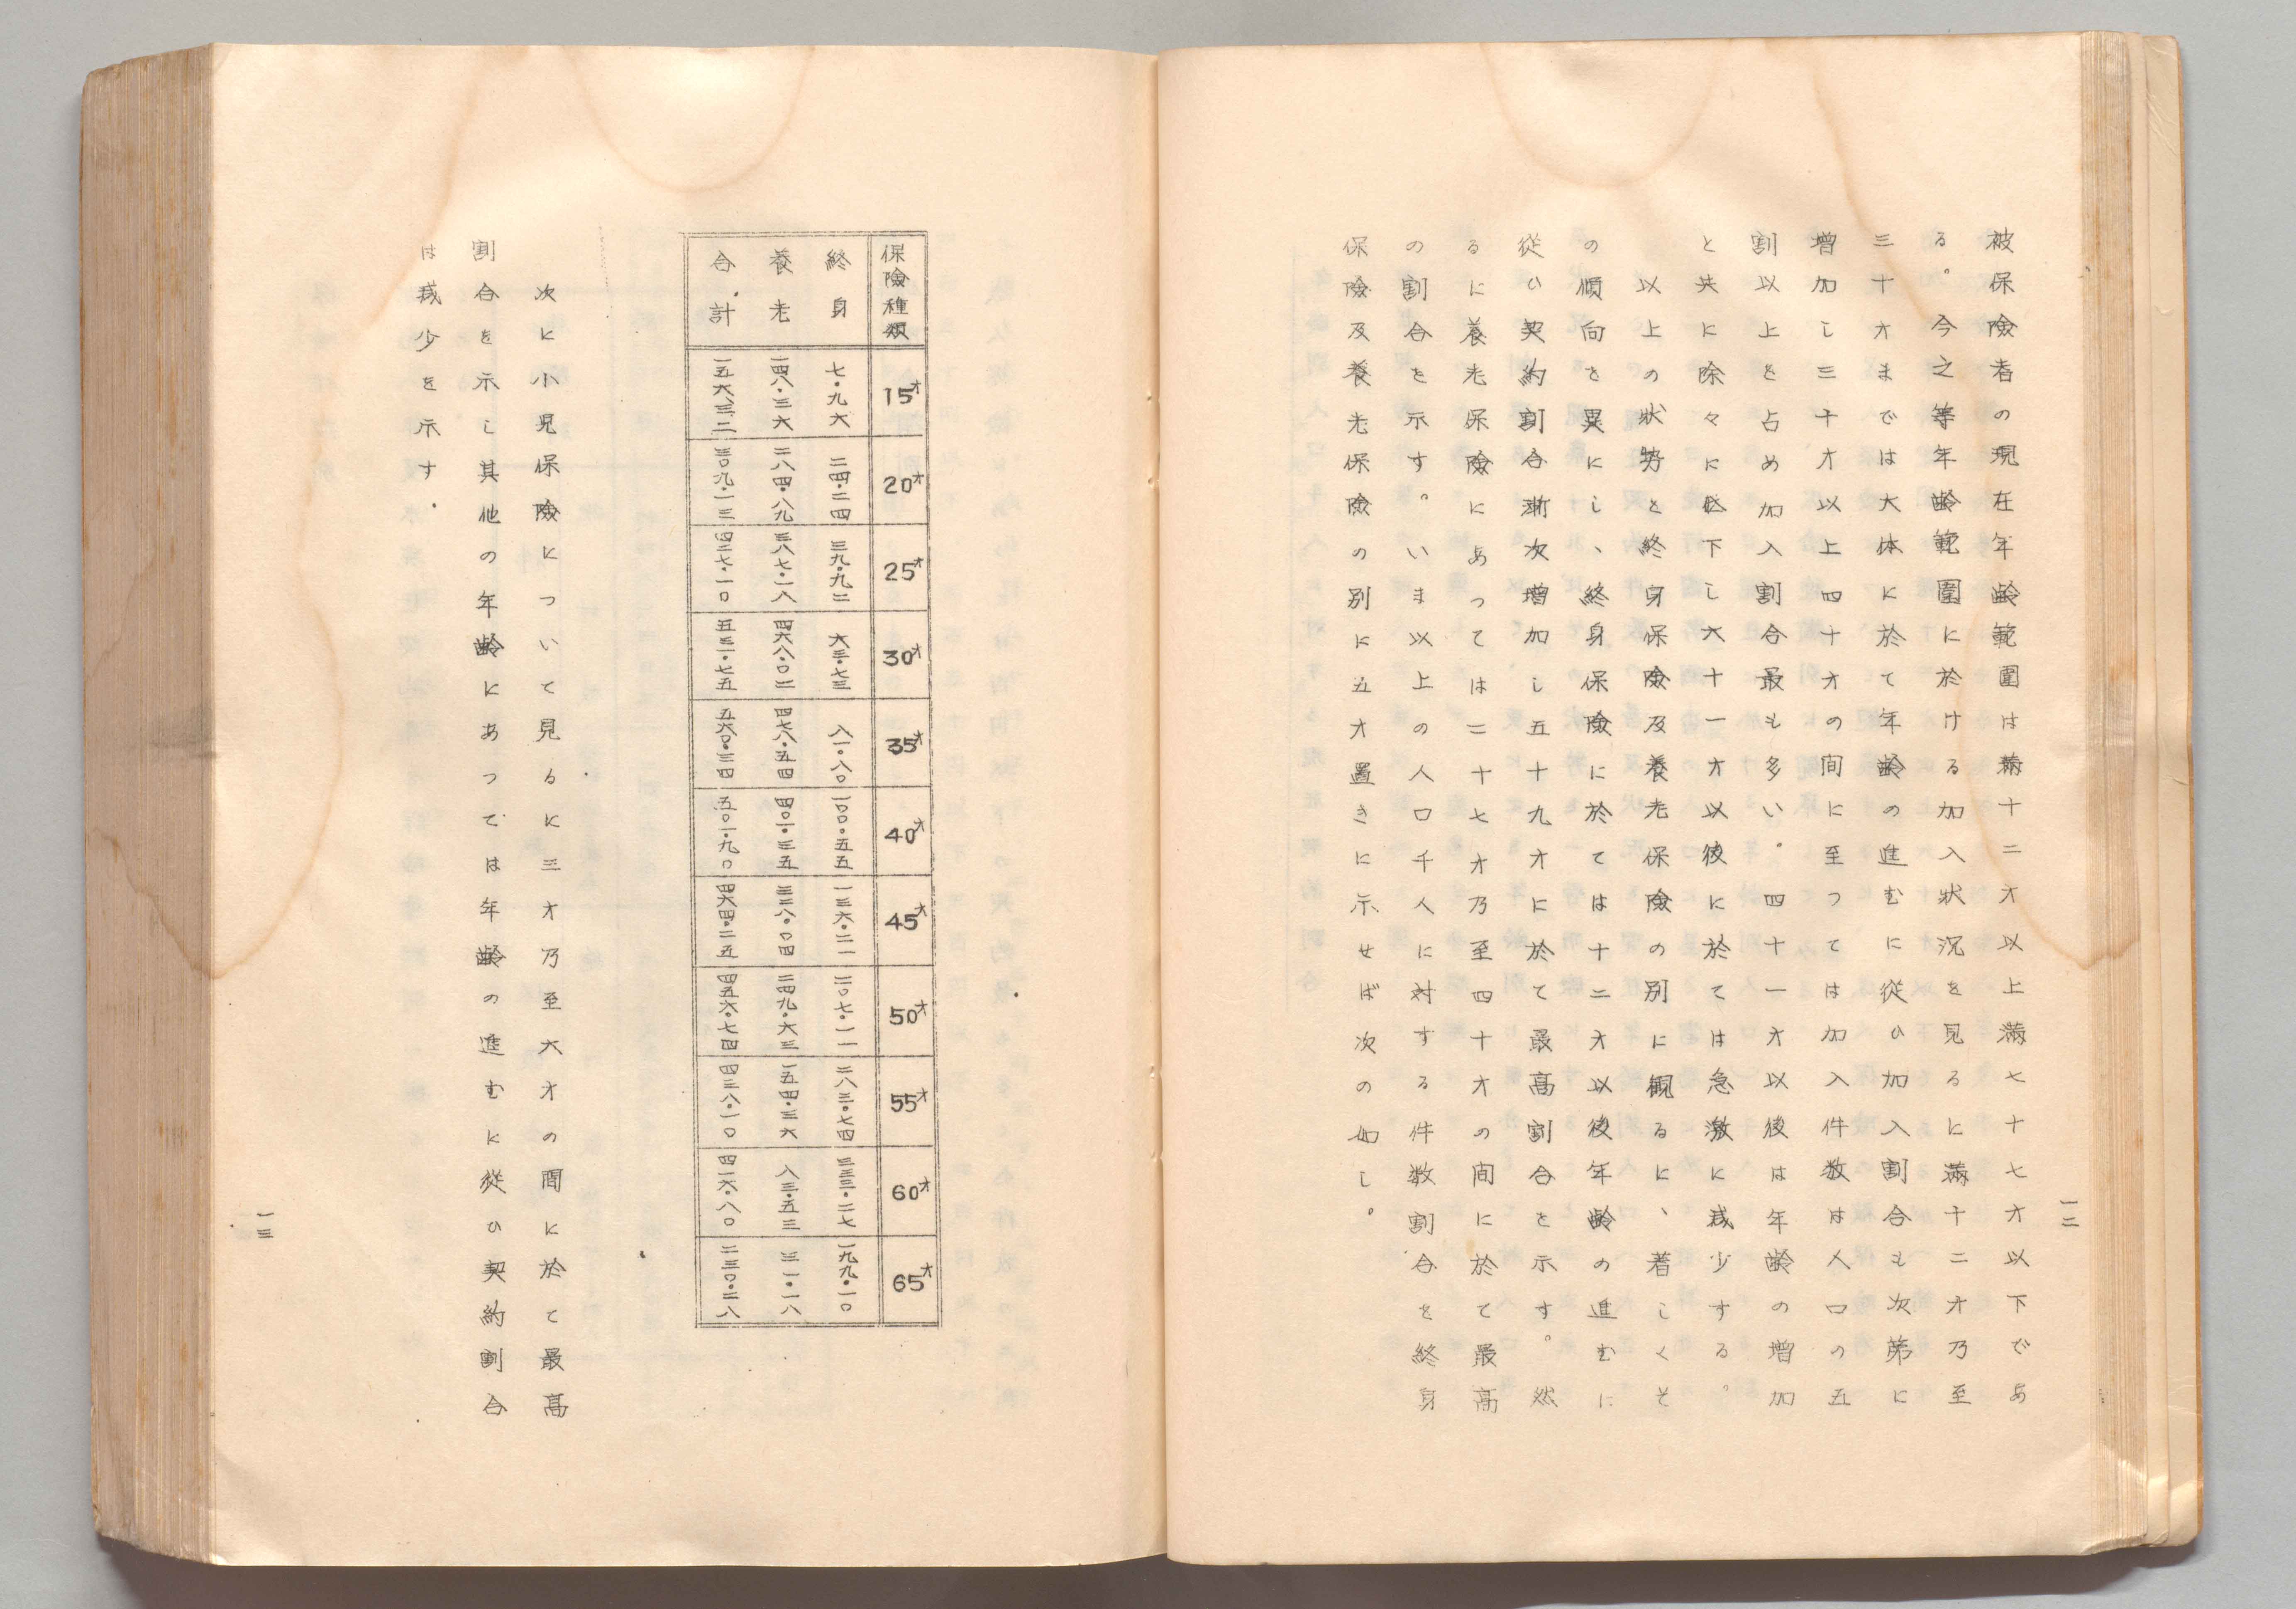 一二
被保險者の現在年齢範圍は満十二才以上満七十七才以下であ
る。今之等年齢範圍に於ける加入状況を見るに満十二才乃至
三十才までは大体に於て年齢の進むに從ひ加入割合も次第に
増加し三十才以上四十才の間に至つては加入件数は人口の五
割以上を占め加入割合最も多い。四十一才以後は年齢の増加
と共に除々に低下し六十一才以後に於ては急激に減少する。
以上の状勢を終身保險及養老保險の別に観るに、著しくそ
の傾向を異にし、終身保險に於ては十二才以後年齢の進むに
從ひ契約割合漸次増加し五十九才に於て最高割合を示す。然
るに養老保險にあつては二十七才乃至四十才の間に於て最高
の割合を示す。いま以上の人口千人に対する件数割合を終身
保險及養老保險の別に五才置きに示せば次の如し。
保險種類 15才 20才 25才 30才 35才 40才 45才 50才 55才 60才 65才
終身 七・九六 二四・二四 三九・九二 六三・七三 八一・八〇 一〇〇・五五 一三六・二一 二〇七・一一 二八三・七四 三三三・二七 一九九・一〇
養老 一四八・三六 二八四・八九 三八七・一八 四六八・〇二 四七八・五四 四〇一・三五 三二八・〇四 二四九・六三 一五四・三六 八三・五三 三一・一八
合計 一五六・三二 三〇九・一三 四二七・一〇 五三一・七五 五六〇・三四 五〇一・九〇 四六四・二五 四五六・七四 四三八・一〇 四一六・八〇 二三〇・二八
次に小児保險について見るに三才乃至六才の間に於て最高
割合を示し其他の年齢にあつては年齢の進むに從ひ契約割合
は減少を示す。
一三